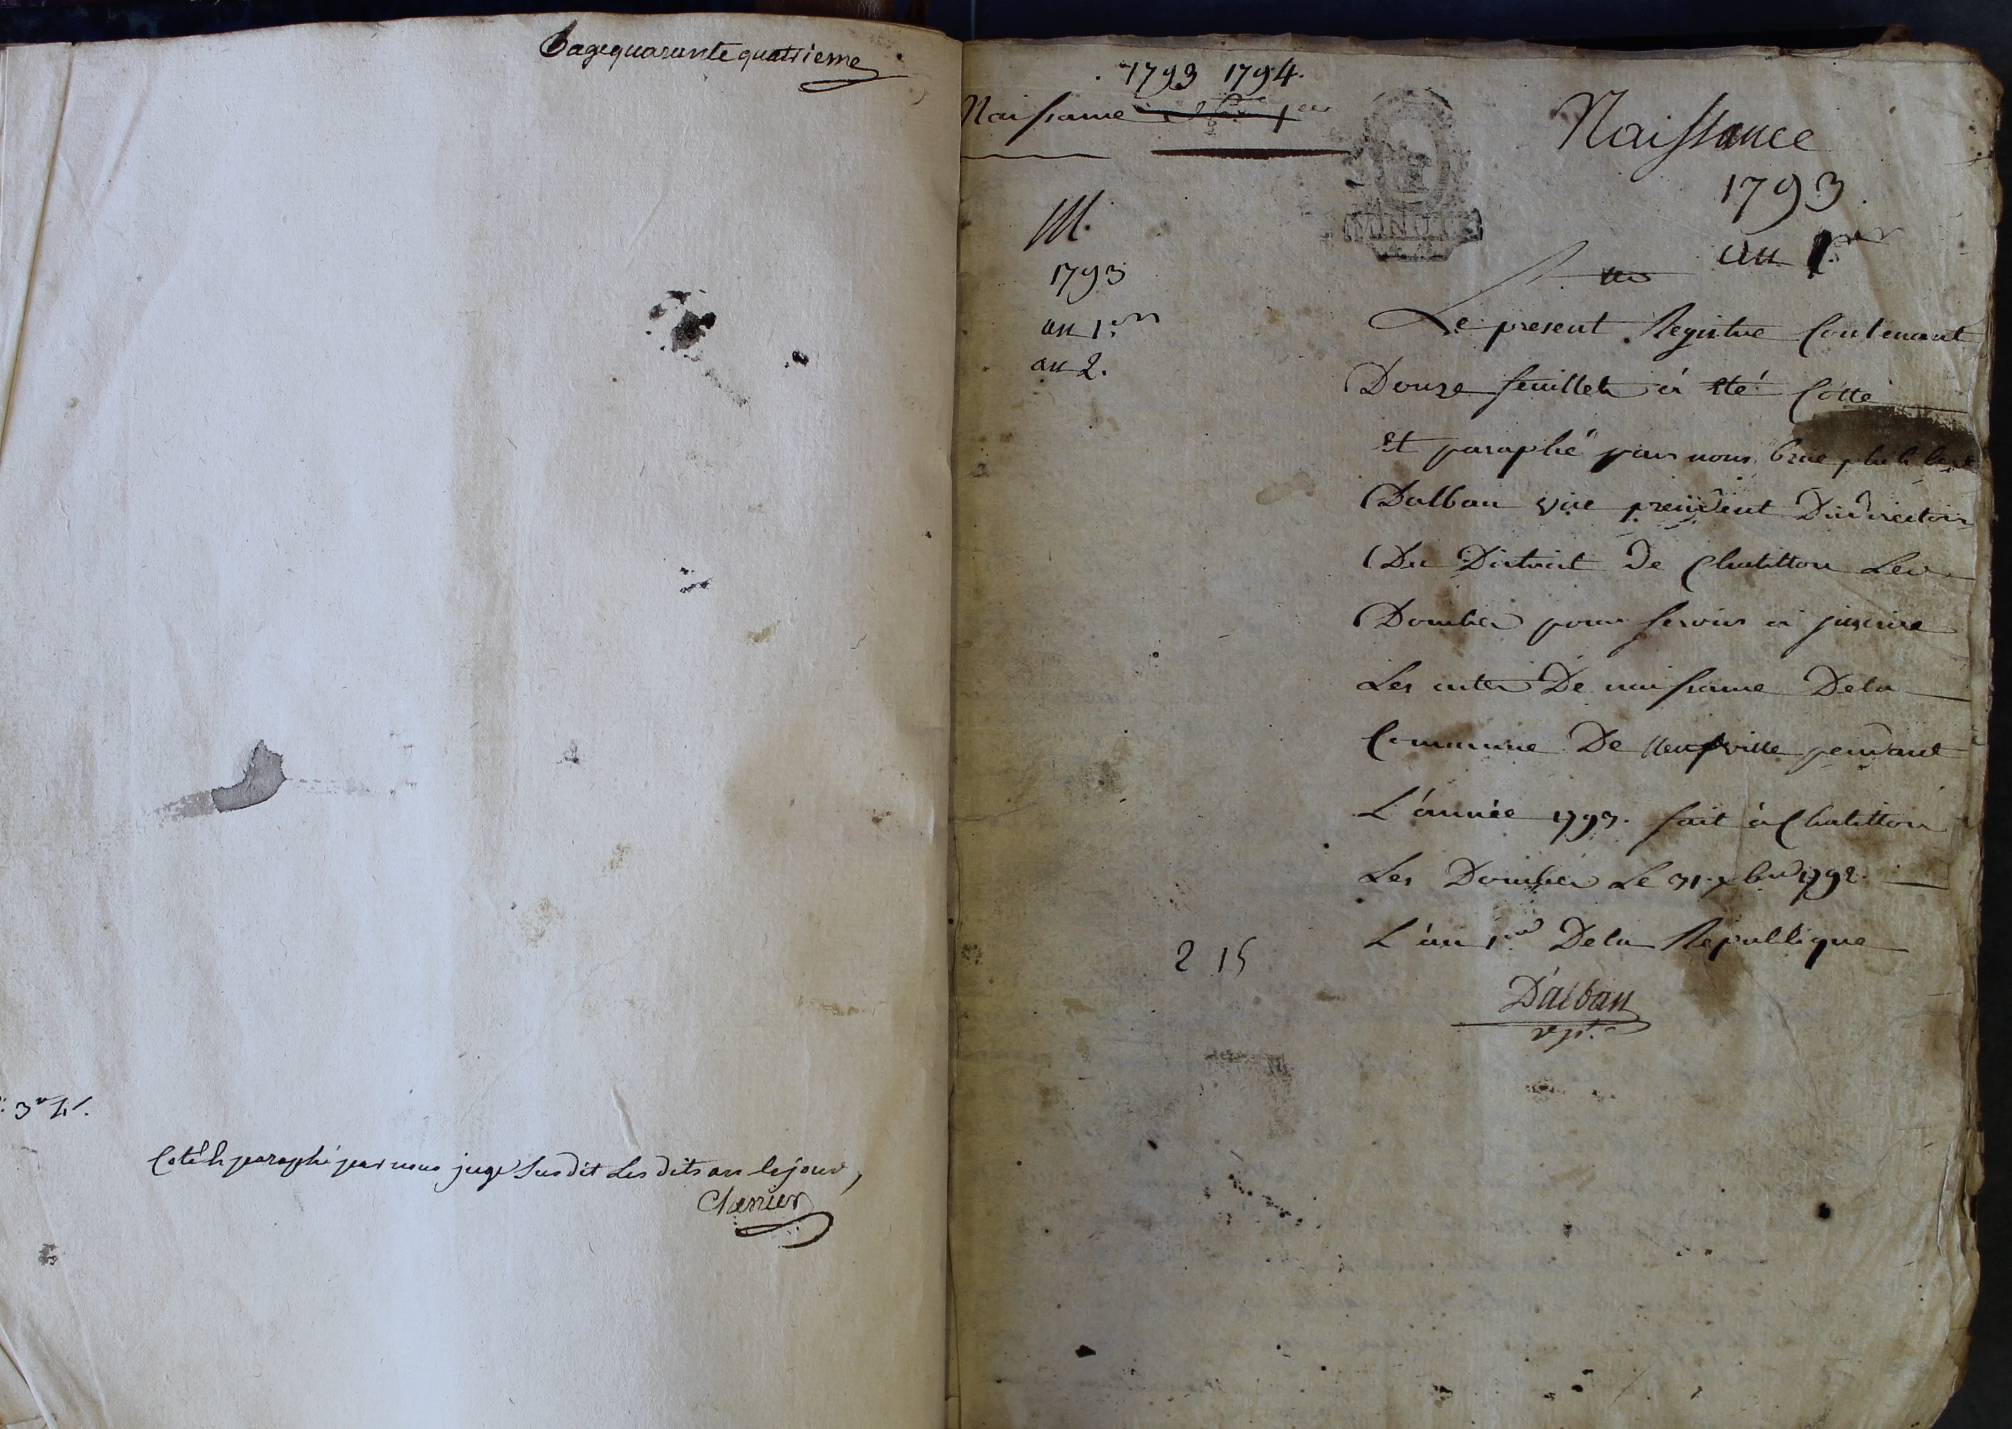 Pagequarante quatrieme
Coté & paraphé par nous juge susdit les dits an & jour,
Chenier
1793 1794.
Naissance
M.
1793
an 1.er
an 2.
2 15
MINUTES
Naissance
1793
an 1.er
Le present Registre Contenant
Douze feuillets à eté Cotte
Et paraphé par nous
Dalban vice president Du directoire
Du District De Chatillon Les
Dombes pour servir à inscrire
Les actes De naissance Dela
Commune De Neufville pendant
L'année 1793. fait à Chatillon
Les Dombes Le 31. xbre 1792.
L'an 1er Dela Republique
D'alban
v. pt.